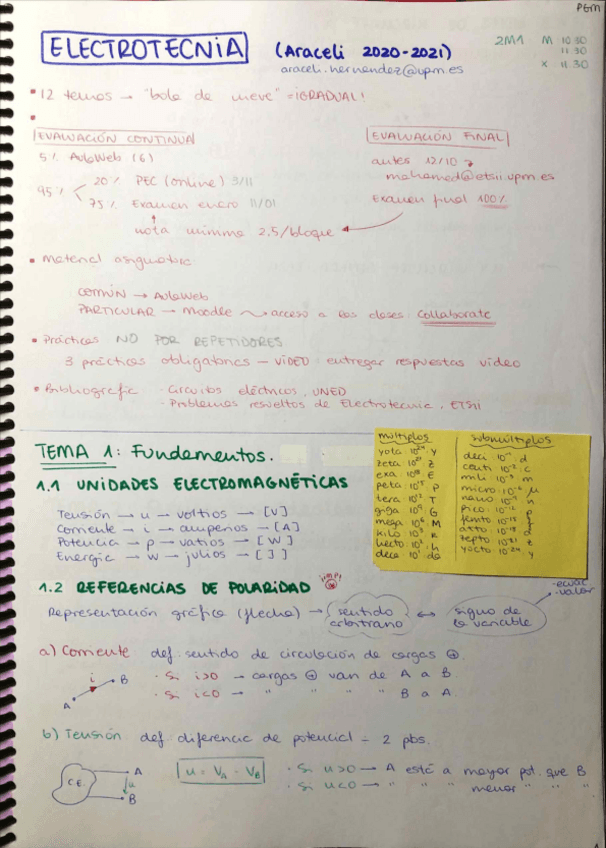 PGM
ELECTROTECNIA (Araceli 2020-2021)
araceli.hernandez@upm.es
2M1 M 10.30
11.30
X 11.30
• 12 temas → "bola de nieve" = ¡GRADUAL!
EVALUACIÓN CONTINUA
5% AulaWeb (6)
95%
20% PEC (online) 3/11
75% Examen enero 11/01
nota mínima 2,5/bloque
EVALUACIÓN FINAL
antes 12/10
mohamed@etsii.upm.es
Examen final 100%
• Material asignatura
COMÚN → AulaWeb
PARTICULAR → Moodle → acceso a las clases: Collaborate
• Prácticas NO POR REPETIDORES
3 prácticas obligatorias - VÍDEO: entregar respuestas vídeo
• Bibliografía - Circuitos eléctricos, UNED
- Problemas resueltos de Electrotecnia, ETSII
TEMA 1: Fundamentos.
1.1 UNIDADES ELECTROMAGNÉTICAS
Tensión → u → voltios → [V]
Corriente → i → amperios → [A]
Potencia → p → vatios → [W]
Energía → w → julios → [J]
múltiplos
yota 10²⁴ Y
zeta 10²¹ Z
exa 10¹⁸ E
peta 10¹⁵ P
tera 10¹² T
giga 10⁹ G
mega 10⁶ M
kilo 10³ K
hecto 10² h
deca 10¹ da
submúltiplos
deci 10⁻¹ d
centi 10⁻² c
mili 10⁻³ m
micro 10⁻⁶ μ
nano 10⁻⁹ n
pico 10⁻¹² p
femto 10⁻¹⁵ f
atto 10⁻¹⁸ a
zepto 10⁻²¹ z
yocto 10⁻²⁴ y
1.2 REFERENCIAS DE POLARIDAD ¡IMP!
Representación gráfica (flecha) → sentido arbitrario ↔ signo de la variable
- ecuac
- valor
a) Corriente def. sentido de circulación de cargas ⊕.
i
A
B
· Si i>0 → cargas ⊕ van de A a B.
· Si i<0 → " " " " B a A
b) Tensión def. diferencia de potencial = 2 ptos.
C.E.
A
u
B
u = V_A - V_B
· Si u>0 → A está a mayor pot. que B
· Si u<0 → " " " menor " " "